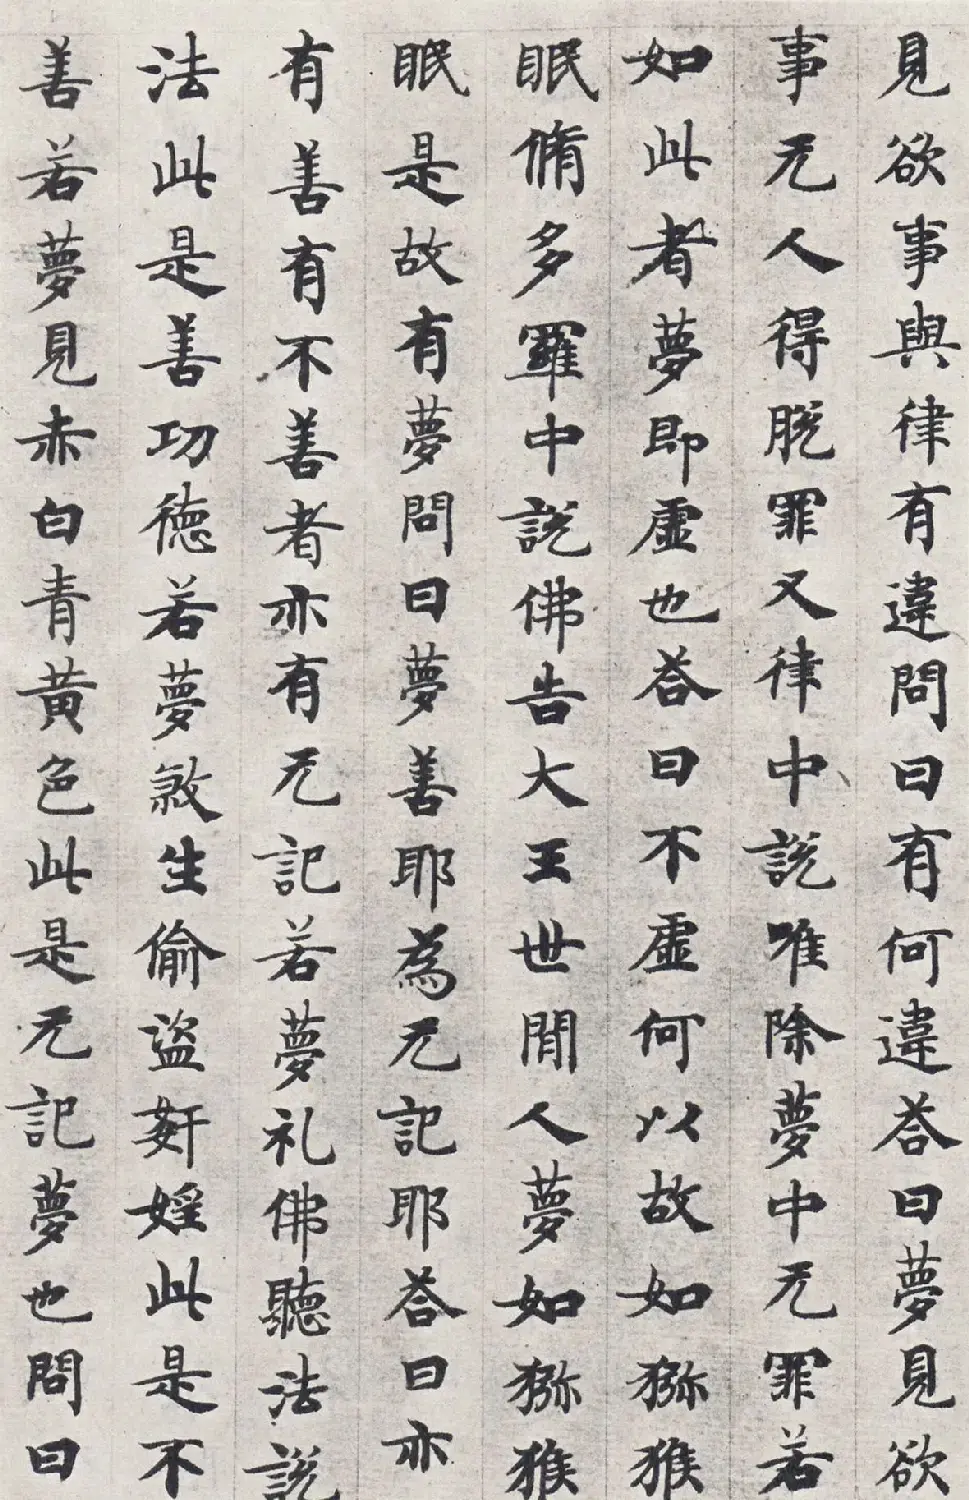 見欲事與律有違問曰有何違荅曰夢見欲
事无人得脫罪又律中說唯除夢中无罪若
如此者夢即虛也荅曰不虛何以故如獼猴
眠脩多羅中說佛告大王世間人夢如獼猴
眠是故有夢問曰夢善耶為无記耶荅曰亦
有善有不善者亦有无記若夢礼佛聽法說
法此是善功德若夢煞生偷盜姧婬此是不
善若夢見赤白青黃色此是无記夢也問曰